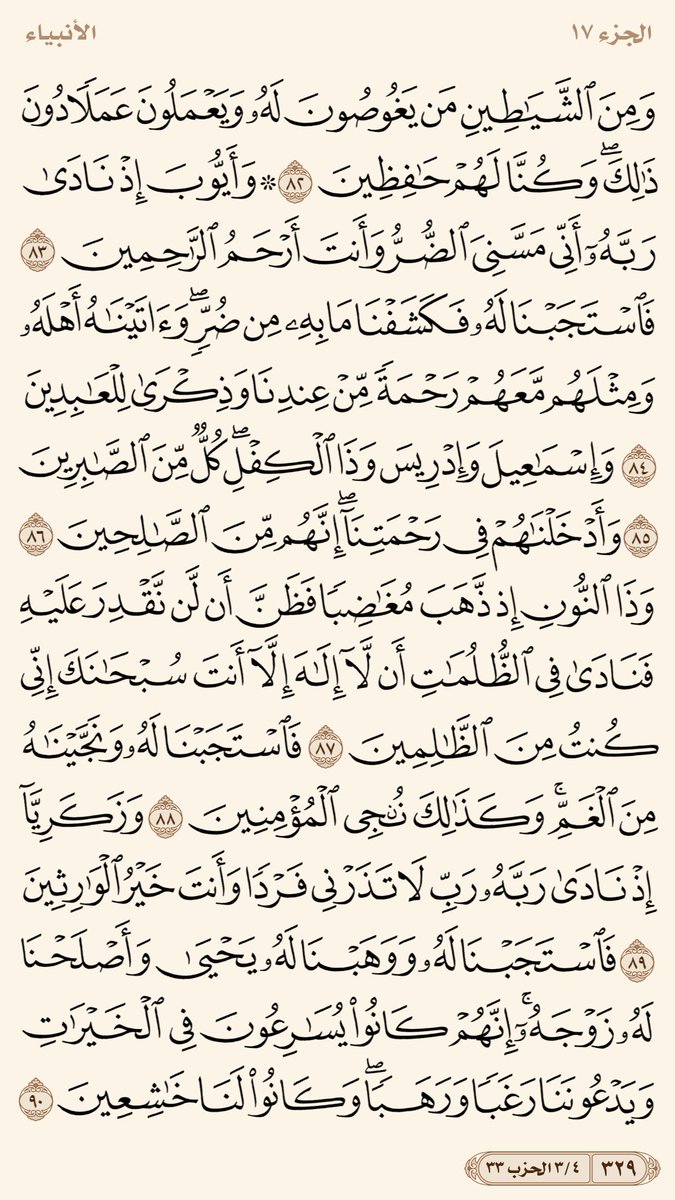 الجزء ١٧
الأنبياء
وَمِنَ ٱلشَّيَـٰطِينِ مَن يَغُوصُونَ لَهُۥ وَيَعْمَلُونَ عَمَلًا دُونَ
ذَٰلِكَ ۖ وَكُنَّا لَهُمْ حَـٰفِظِينَ ٨٢ ۞ وَأَيُّوبَ إِذْ نَادَىٰ
رَبَّهُۥٓ أَنِّى مَسَّنِىَ ٱلضُّرُّ وَأَنتَ أَرْحَمُ ٱلرَّٰحِمِينَ ٨٣
فَٱسْتَجَبْنَا لَهُۥ فَكَشَفْنَا مَا بِهِۦ مِن ضُرٍّ ۖ وَءَاتَيْنَـٰهُ أَهْلَهُۥ
وَمِثْلَهُم مَّعَهُمْ رَحْمَةً مِّنْ عِندِنَا وَذِكْرَىٰ لِلْعَـٰبِدِينَ
٨٤ وَإِسْمَـٰعِيلَ وَإِدْرِيسَ وَذَا ٱلْكِفْلِ ۖ كُلٌّ مِّنَ ٱلصَّـٰبِرِينَ
٨٥ وَأَدْخَلْنَـٰهُمْ فِى رَحْمَتِنَآ ۖ إِنَّهُم مِّنَ ٱلصَّـٰلِحِينَ ٨٦
وَذَا ٱلنُّونِ إِذ ذَّهَبَ مُغَـٰضِبًا فَظَنَّ أَن لَّن نَّقْدِرَ عَلَيْهِ
فَنَادَىٰ فِى ٱلظُّلُمَـٰتِ أَن لَّآ إِلَـٰهَ إِلَّآ أَنتَ سُبْحَـٰنَكَ إِنِّى
كُنتُ مِنَ ٱلظَّـٰلِمِينَ ٨٧ فَٱسْتَجَبْنَا لَهُۥ وَنَجَّيْنَـٰهُ
مِنَ ٱلْغَمِّ ۚ وَكَذَٰلِكَ نُـۨجِى ٱلْمُؤْمِنِينَ ٨٨ وَزَكَرِيَّآ
إِذْ نَادَىٰ رَبَّهُۥ رَبِّ لَا تَذَرْنِى فَرْدًا وَأَنتَ خَيْرُ ٱلْوَٰرِثِينَ
٨٩ فَٱسْتَجَبْنَا لَهُۥ وَوَهَبْنَا لَهُۥ يَحْيَىٰ وَأَصْلَحْنَا
لَهُۥ زَوْجَهُۥٓ ۚ إِنَّهُمْ كَانُوا۟ يُسَـٰرِعُونَ فِى ٱلْخَيْرَٰتِ
وَيَدْعُونَنَا رَغَبًا وَرَهَبًا ۖ وَكَانُوا۟ لَنَا خَـٰشِعِينَ ٩٠
٣٢٩ ٣/٤ الحزب ٣٣